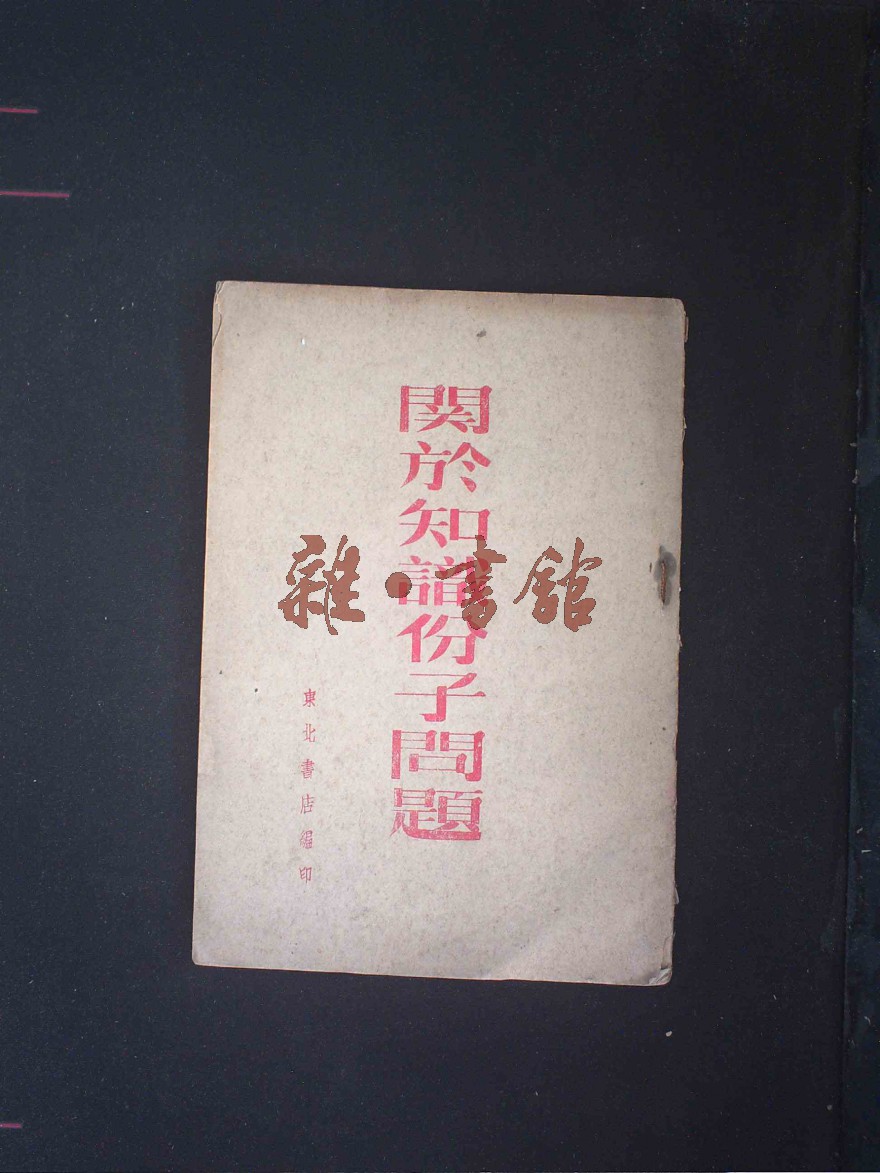 関於知識份子問題
東北書店編印
雜·書館